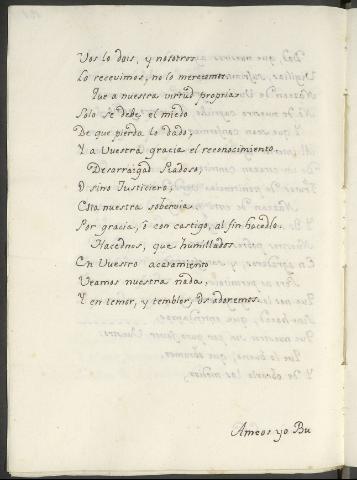 Vos lo dais, y nosotros
Lo recevimos, no lo merecemos.
Que a nuestra virtud propria
Solo se debe el miedo
De que pierda lo dado,
Y a Vuestra gracia el reconocimiento.
Desarraigad Piadoso
O sino Justiciero,
Esta nuestra sobervia
Por gracia, ò con castigo, al fin hacedlo.
Hacednos, que humillados
En Vuestro acatamiento
Veamos nuestra nada,
Y en temor, y temblor, os adoremos.
Ameos yo Bu